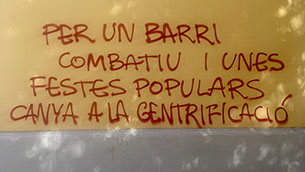 PER UN BARRI
COMBATIU I UNES
FESTES POPULARS
CANYA A LA GENTRIFICACIÓ